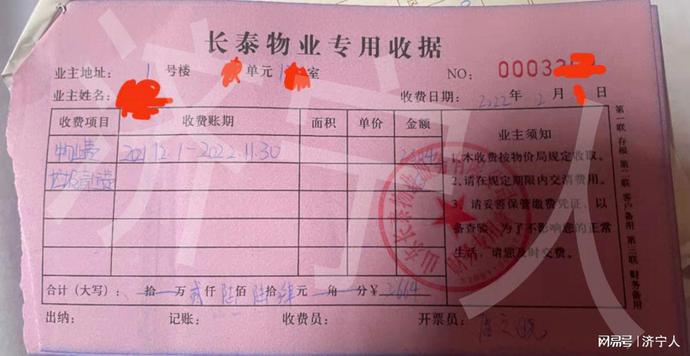 长泰物业专用收据
业主地址: 1 号楼 单元 1 室 NO: 0003
业主姓名: 收费日期: 2022年 2月 日
收费项目 收费账期 面积 单价 金额 业主须知
物业费 2021.12.1-2022.11.30
1.本收费按物价局规定收取。
2、请在规定期限内交清费用。
3、请妥善保管缴费凭证，以
备查验，为了不影响您的正常
生活，请您及时交费。
合计（大写）: 拾 万 贰仟 陆佰 陆拾 肆元 角 分￥ 2664
出纳: 记账: 收费员: 开票员:
第一联 存根 第二联 客户备用 第三联 财务备用
山东长泰物业
济宁人
网易号 | 济宁人